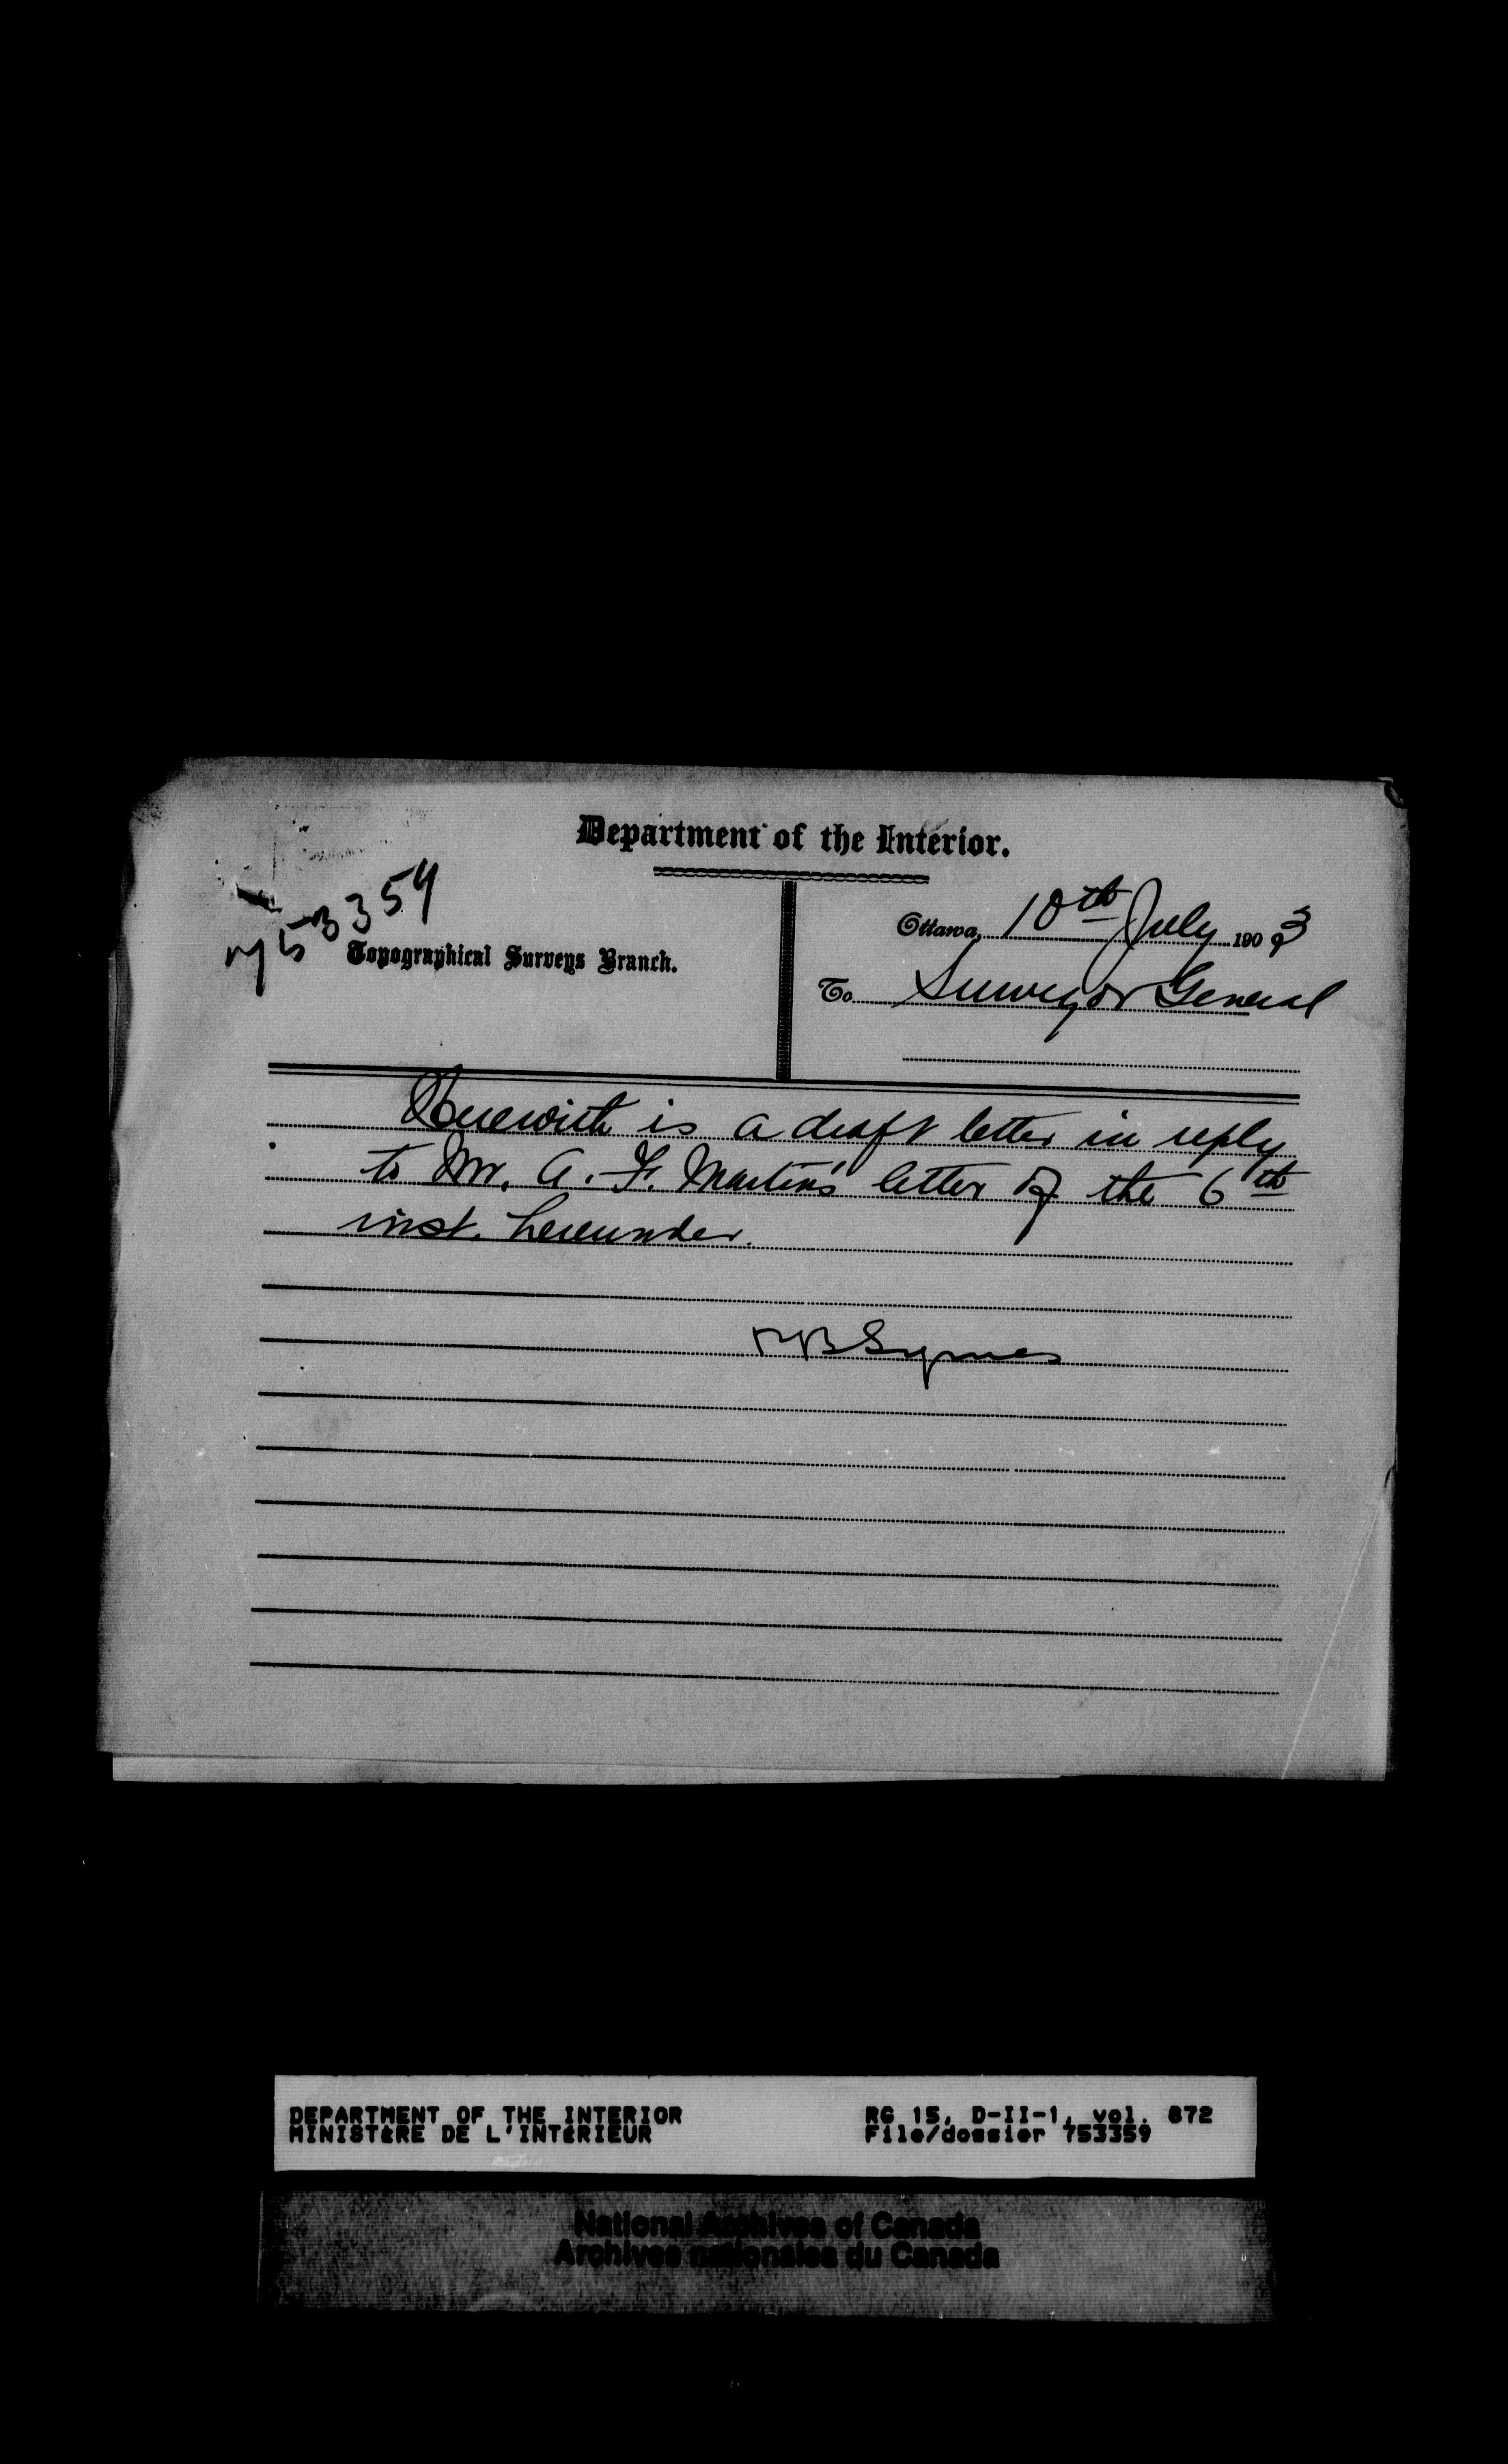 Department of the Interior.
753359
Topographical Surveys Branch.
Ottawa, 10th July 1903
To Surveyor General
Herewith is a draft letter in reply
to Mr. A. F. Martin's letter of the 6th
inst. hereunder.
PBSymes
DEPARTMENT OF THE INTERIOR
MINISTÈRE DE L'INTÉRIEUR
RG 15, D-II-1, vol. 872
File/dossier 753359
National Archives of Canada
Archives nationales du Canada